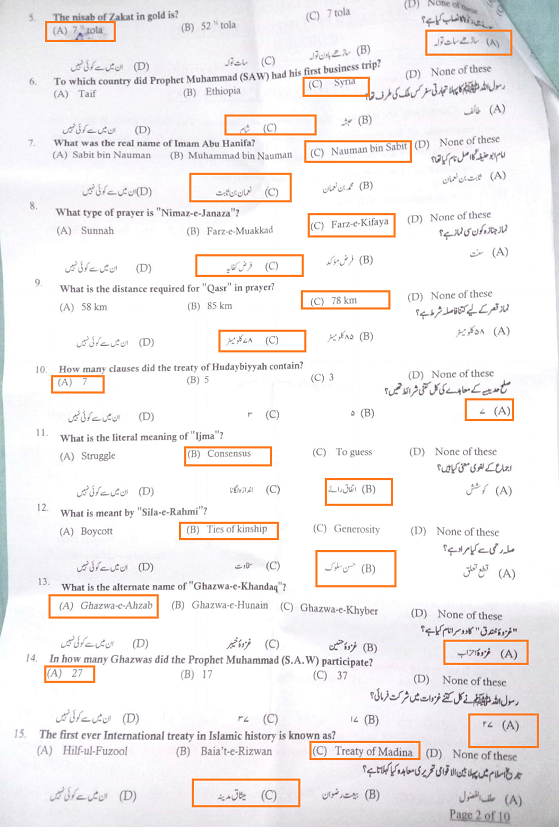 (D) None of these
5. The nisab of Zakat in gold is?
(A) 7 ½ tola (B) 52 ½ tola (C) 7 tola
(A) ساڑھے سات تولہ (B) ساڑھے باون تولہ (C) سات تولہ (D) ان میں سے کوئی نہیں
6. To which country did Prophet Muhammad (SAW) had his first business trip?
(A) Taif (B) Ethiopia (C) Syria (D) None of these
رسول اللہ ﷺ کا پہلا تجارتی سفر کس ملک کی طرف تھا؟
(A) طائف (B) حبشہ (C) شام (D) ان میں سے کوئی نہیں
7. What was the real name of Imam Abu Hanifa?
(A) Sabit bin Nauman (B) Muhammad bin Nauman (C) Nauman bin Sabit (D) None of these
امام ابو حنیفہ کا اصل نام کیا تھا؟
(A) ثابت بن نعمان (B) محمد بن نعمان (C) نعمان بن ثابت (D) ان میں سے کوئی نہیں
8. What type of prayer is "Nimaz-e-Janaza"?
(A) Sunnah (B) Farz-e-Muakkad (C) Farz-e-Kifaya (D) None of these
نماز جنازہ کون سی نماز ہے؟
(A) سنت (B) فرض مؤکد (C) فرض کفایہ (D) ان میں سے کوئی نہیں
9. What is the distance required for "Qasr" in prayer?
(A) 58 km (B) 85 km (C) 78 km (D) None of these
نماز قصر کے لیے کتنا فاصلہ شرط ہے؟
(A) ۵۸ کلومیٹر (B) ۸۵ کلومیٹر (C) ۷۸ کلومیٹر (D) ان میں سے کوئی نہیں
10. How many clauses did the treaty of Hudaybiyyah contain?
(A) 7 (B) 5 (C) 3 (D) None of these
صلح حدیبیہ کے معاہدے کی کل کتنی شرائط تھیں؟
(A) ۷ (B) ۵ (C) ۳ (D) ان میں سے کوئی نہیں
11. What is the literal meaning of "Ijma"?
(A) Struggle (B) Consensus (C) To guess (D) None of these
اجماع کے لغوی معنی کیا ہیں؟
(A) کوشش (B) اتفاق رائے (C) اندازہ لگانا (D) ان میں سے کوئی نہیں
12. What is meant by "Sila-e-Rahmi"?
(A) Boycott (B) Ties of kinship (C) Generosity (D) None of these
صلہ رحمی سے کیا مراد ہے؟
(A) قطع تعلق (B) حسن سلوک (C) سخاوت (D) ان میں سے کوئی نہیں
13. What is the alternate name of "Ghazwa-e-Khandaq"?
(A) Ghazwa-e-Ahzab (B) Ghazwa-e-Hunain (C) Ghazwa-e-Khyber (D) None of these
"غزوۂ خندق" کا دوسرا نام کیا ہے؟
(A) غزوۂ احزاب (B) غزوۂ حنین (C) غزوۂ خیبر (D) ان میں سے کوئی نہیں
14. In how many Ghazwas did the Prophet Muhammad (S.A.W) participate?
(A) 27 (B) 17 (C) 37 (D) None of these
رسول اللہ ﷺ نے کل کتنے غزوات میں شرکت فرمائی؟
(A) ۲۷ (B) ۱۷ (C) ۳۷ (D) ان میں سے کوئی نہیں
15. The first ever International treaty in Islamic history is known as?
(A) Hilf-ul-Fuzool (B) Baia't-e-Rizwan (C) Treaty of Madina (D) None of these
تاریخ اسلام میں پہلا بین الاقوامی تحریری معاہدہ کیا کہلاتا ہے؟
(A) حلف الفضول (B) بیعت رضوان (C) میثاق مدینہ (D) ان میں سے کوئی نہیں
Page 2 of 10